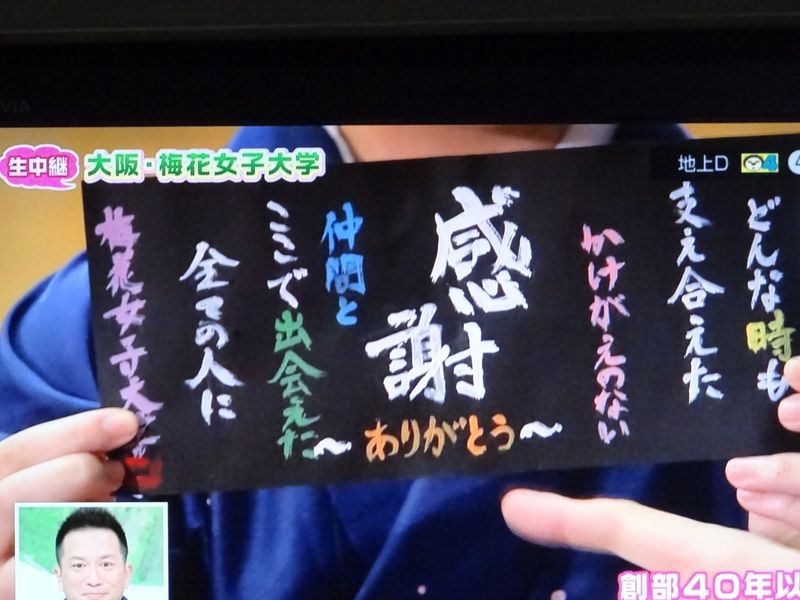 VIA
生中継
大阪・梅花女子大学
地上D
4
どんな時も
支え合えた
かけがえのない
感謝
~ありがとう~
仲間と
ここで出会えた
全ての人に
梅花女子大
創部40年以